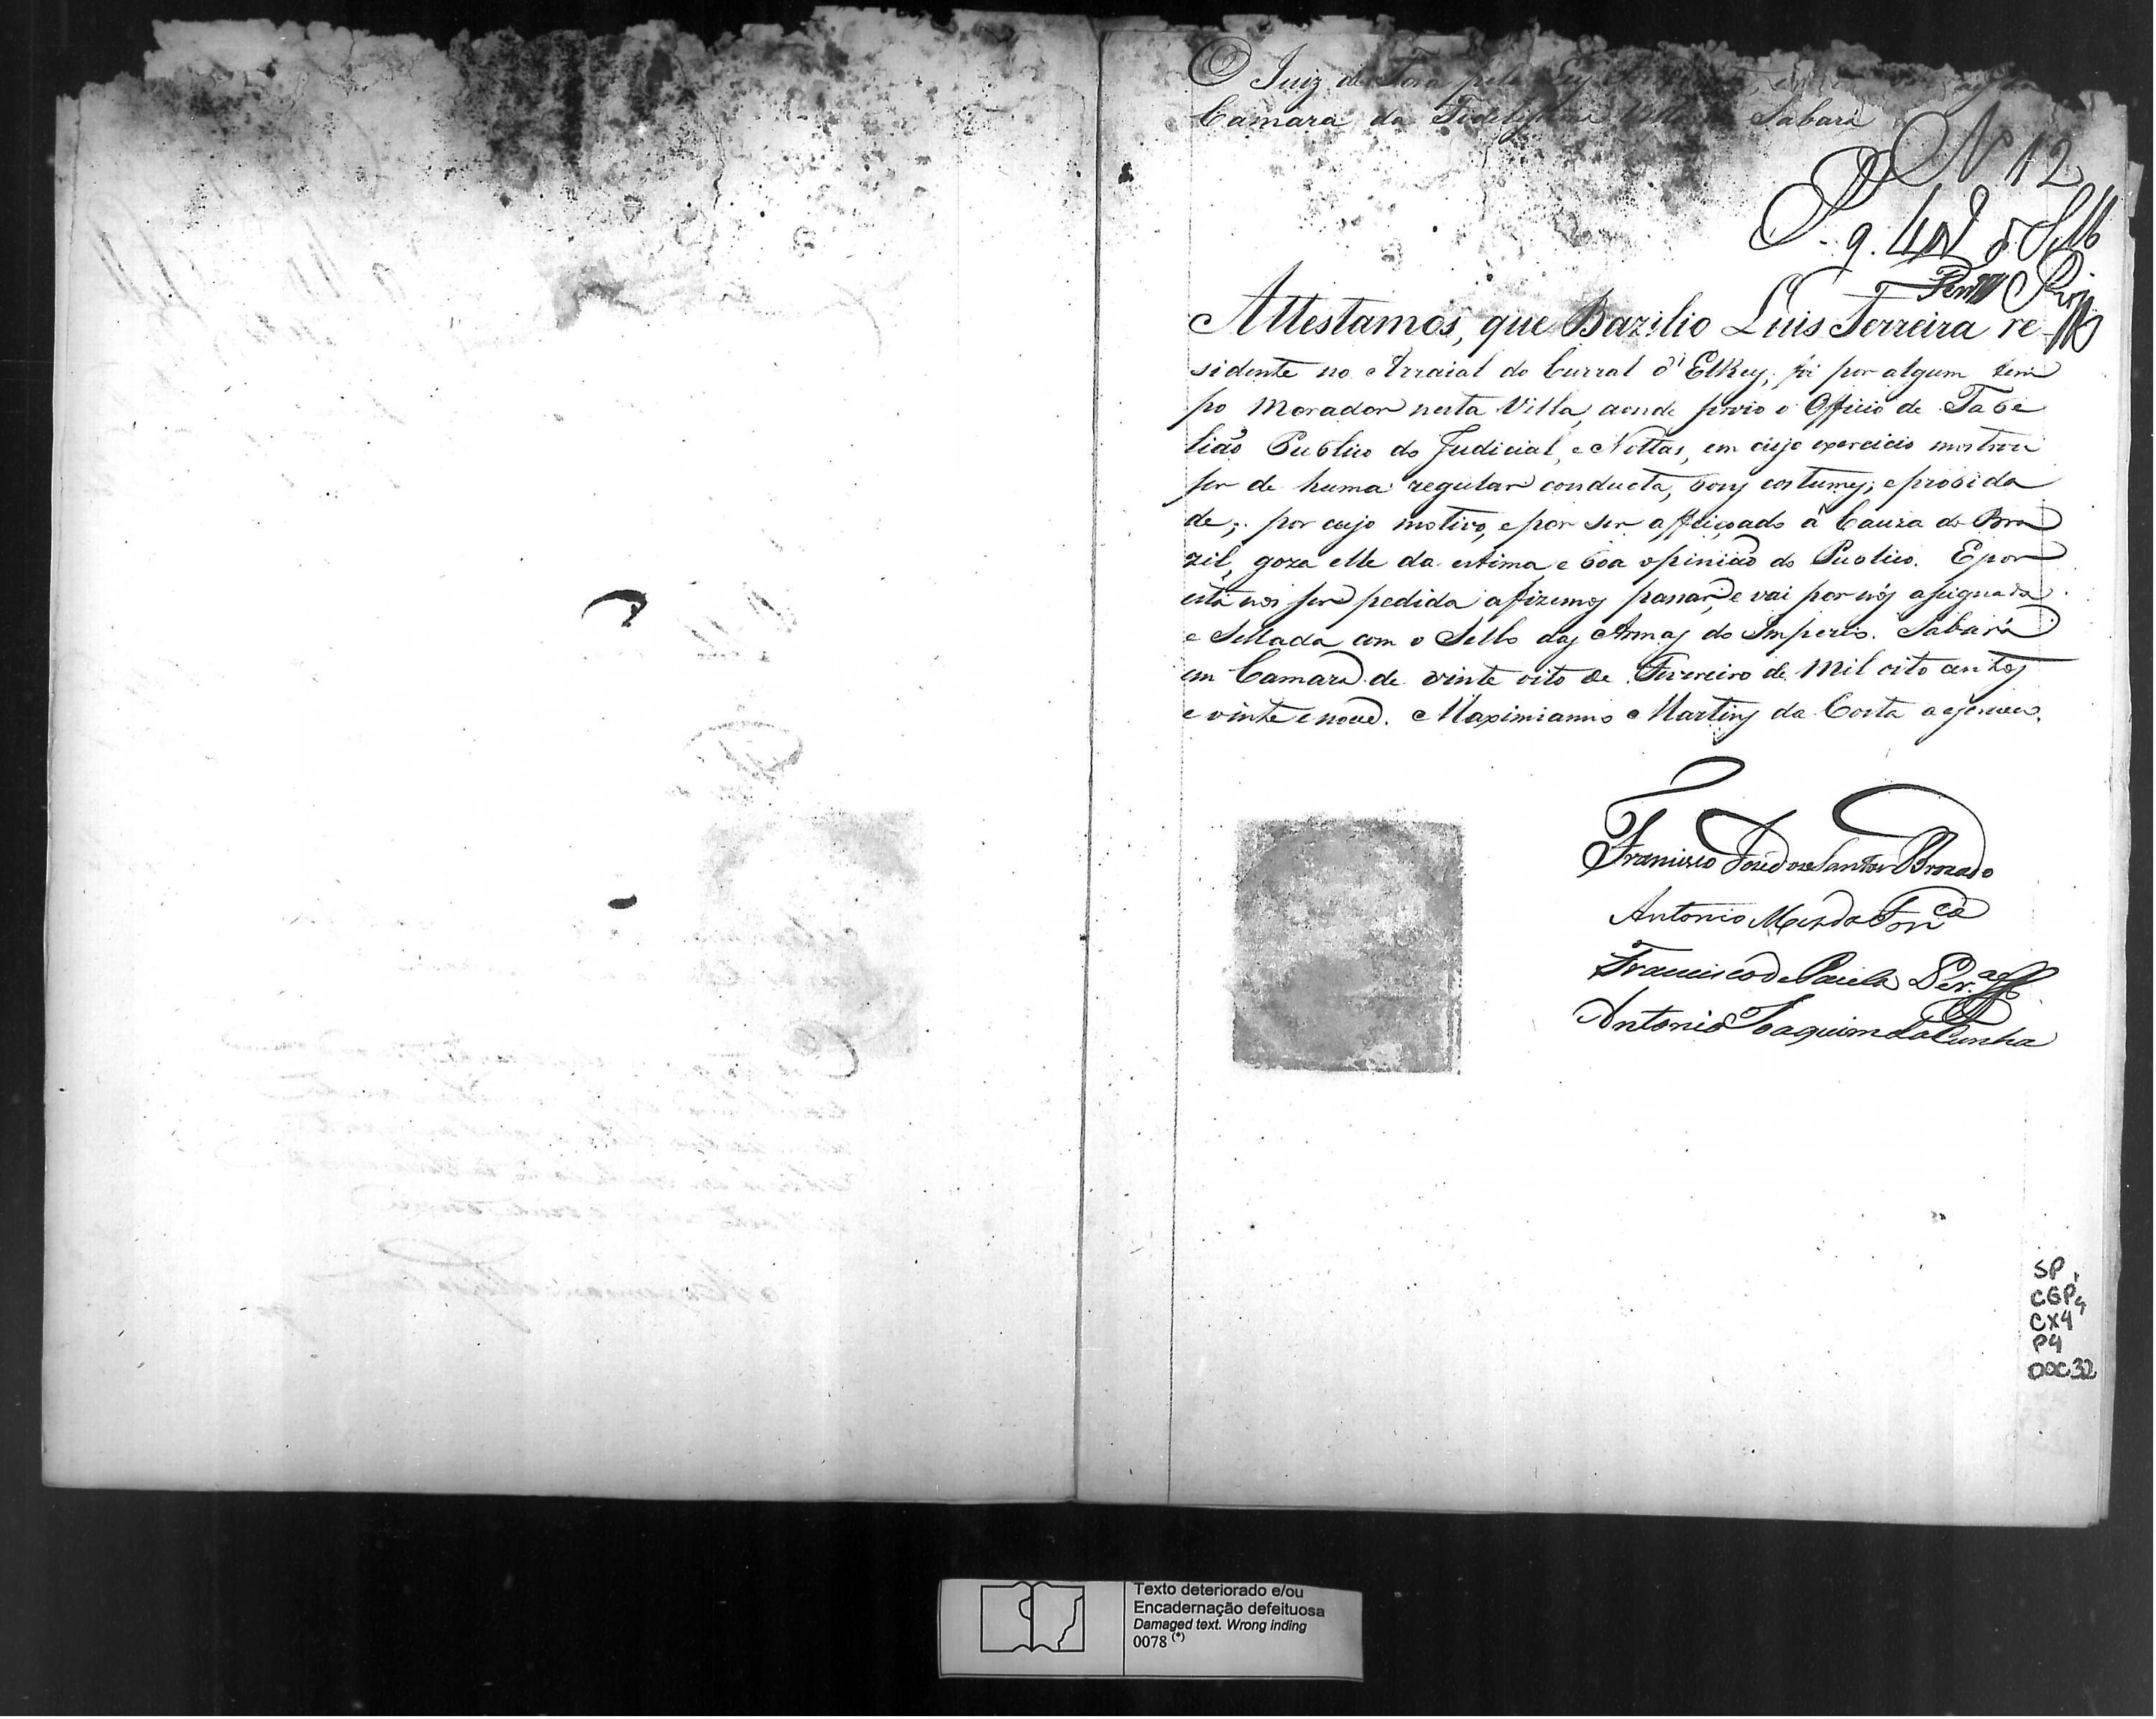 O Juiz de Fora pela Ley
Camara da Fidelissima Villa do Sabará
Nº 12
P. g. 40 rs de Sello
Attestamos, que Bazilio Luis Ferreira re
sidente no Arraial do Curral d'ElRey, foi por algum tem
po Morador nesta Villa, aonde servio o Officio de Tabe
lião Publico do Judicial, e Nottas, em cujo exercicio mostrou
ser de huma regular conducta, bons costumes, e probida
de; por cujo motivo, e por ser affeiçoado á Cauza do Bra
zil, goza elle da estima, e boa opinião do Publico. E por
esta nos ser pedida a fizemos passar, e vai por nós assignada
e Sellada com o Sello das Armas do Imperio. Sabará
em Camara de vinte oito de Fevereiro de Mil oito centos
e vinte e nove. Maximianno Martins da Costa a escreveo.
Francisco José dos Santos Brochado
Antonio Mis da Fonca
Francisco de Paula Pera
Antonio Joaquim da Cunha
SP
CGP1
CX4
P4
DOC.32
Texto deteriorado e/ou
Encadernação defeituosa
Damaged text. Wrong inding
0078 (*)